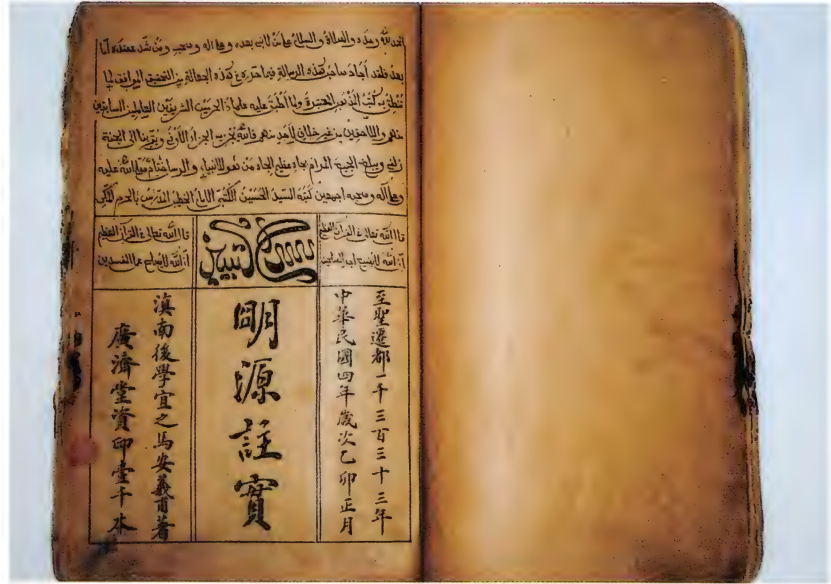 الحمد لله وحده والصلاة والسلام على من لا نبي بعده وعلى اله وصحبه ومن شد عضده اما
بعد فلقد أجاد صاحب هذه الرسالة فيما حرره في هذه العجالة من التحقيق الموافق لما
تنطق به كتب المذهب المعتبرة ولما أطبق عليه علماء الحرمين الشريفين العاملين السابقين
منهم واللاحقين من غير خلاف لأحد منهم فالله يجزيه الجزاء الأوفى ويقربنا الى الجنة
زلفى ويبلغ الجميع المرام بجاه عظيم الجاه من هو للانبياء والرسل ختام صلى الله عليه
وعلى اله وصحبه اجمعين كتبه السيد الحسين الكتبي الامام الخطيب المدرس بالحرم المكي
قال الله تعالى في القرآن العظيم
ان الله لا يضيع اجر
قال الله تعالى في القرآن العظيم
ان الله لا يصلح عمل المفسدين
至聖遷都一千三百三十三年
中華民國四年歲次乙卯正月
明源註實
滇南後學宜之馬安義甫著
廣濟堂資印壹千本